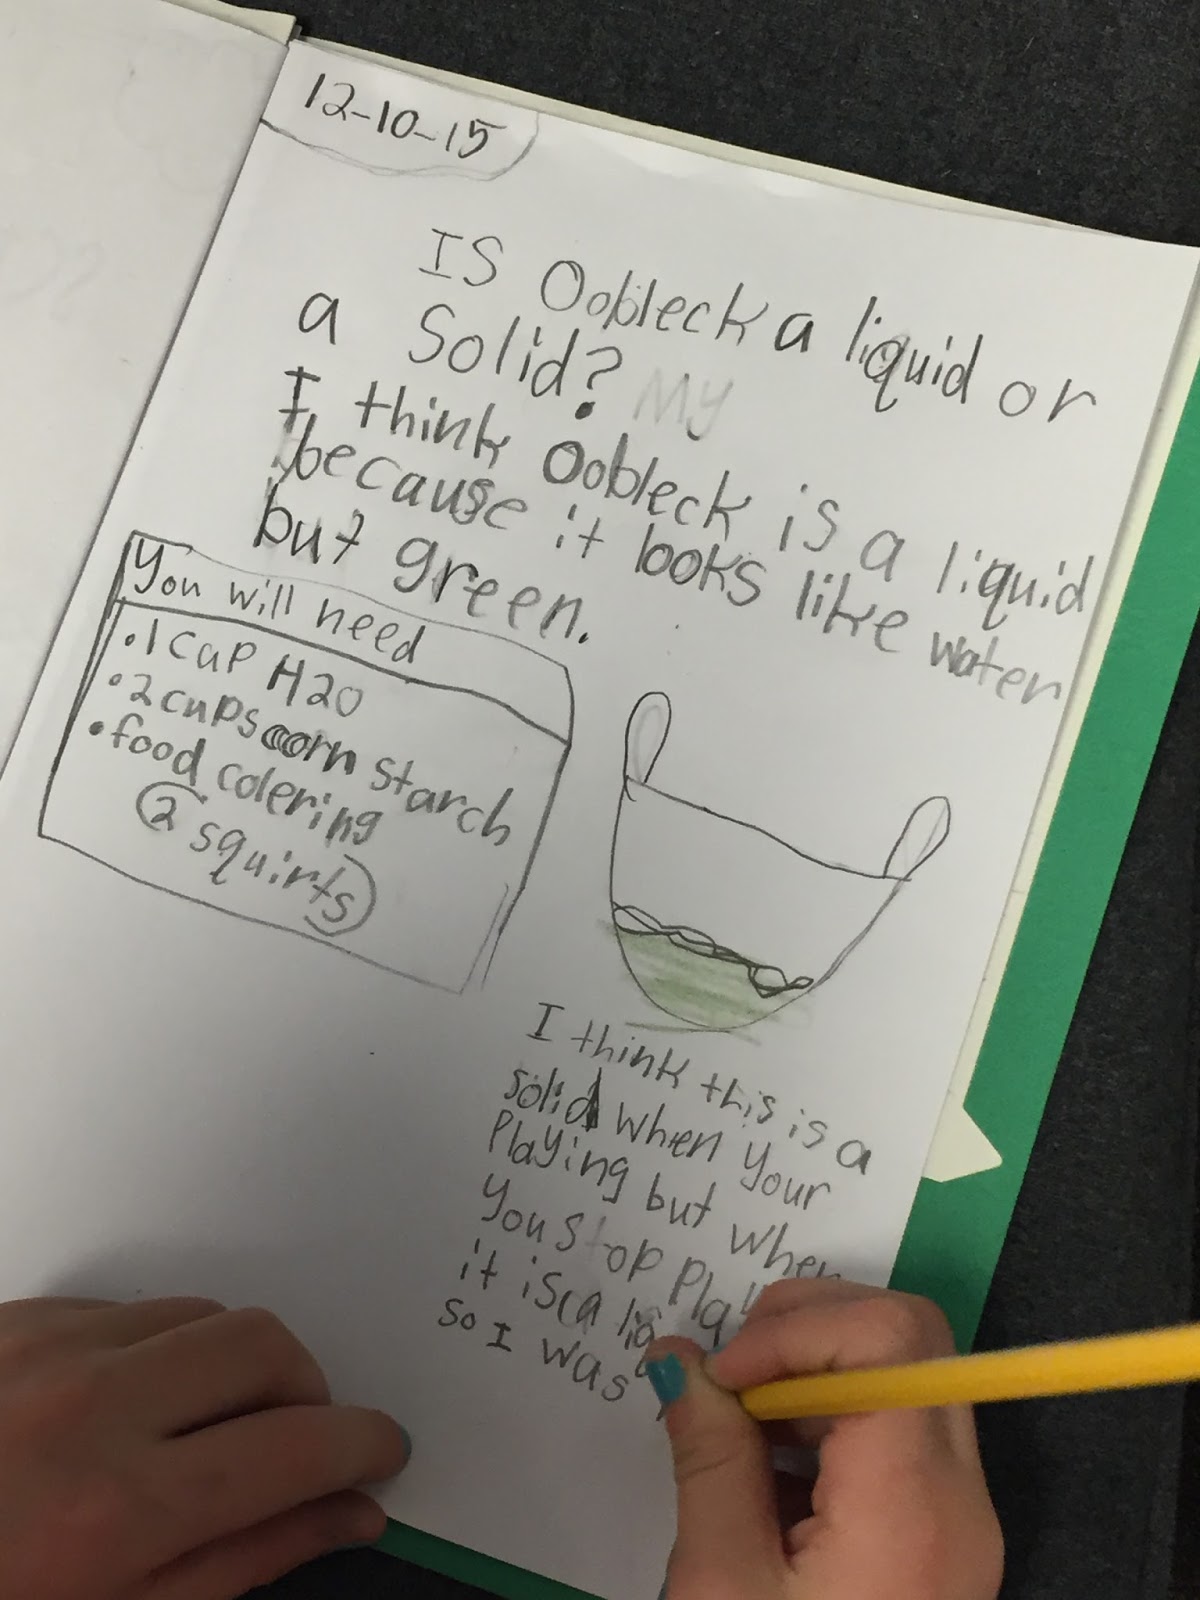 12-10-15
IS Oobleck a liquid or
a Solid? My
I think Oobleck is a liquid
because it looks like water
but green.
You will need
• 1 cup H20
• 2 cups corn starch
• food colering
(2 squirts)
I think this is a
solid when your
Playing but when
you stop
it is a
so I was